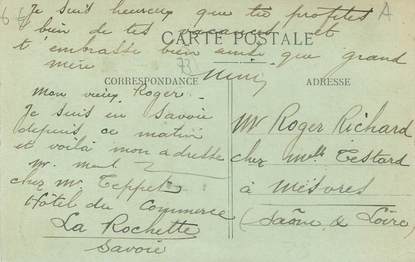 Je suis heureux que tu profites
bien de tes vacances et
t'embrasse bien ainsi que grand
mère
CARTE POSTALE
73
CORRESPONDANCE
ADRESSE
Mon vieux Roger
Je suis en Savoie
depuis ce matin
et voilà mon adresse
chez Mr Teppet
Hôtel du Commerce
La Rochette
Savoie
Mr Roger Richard
chez Melle Testard
à Mesvres
(Saône & Loire)